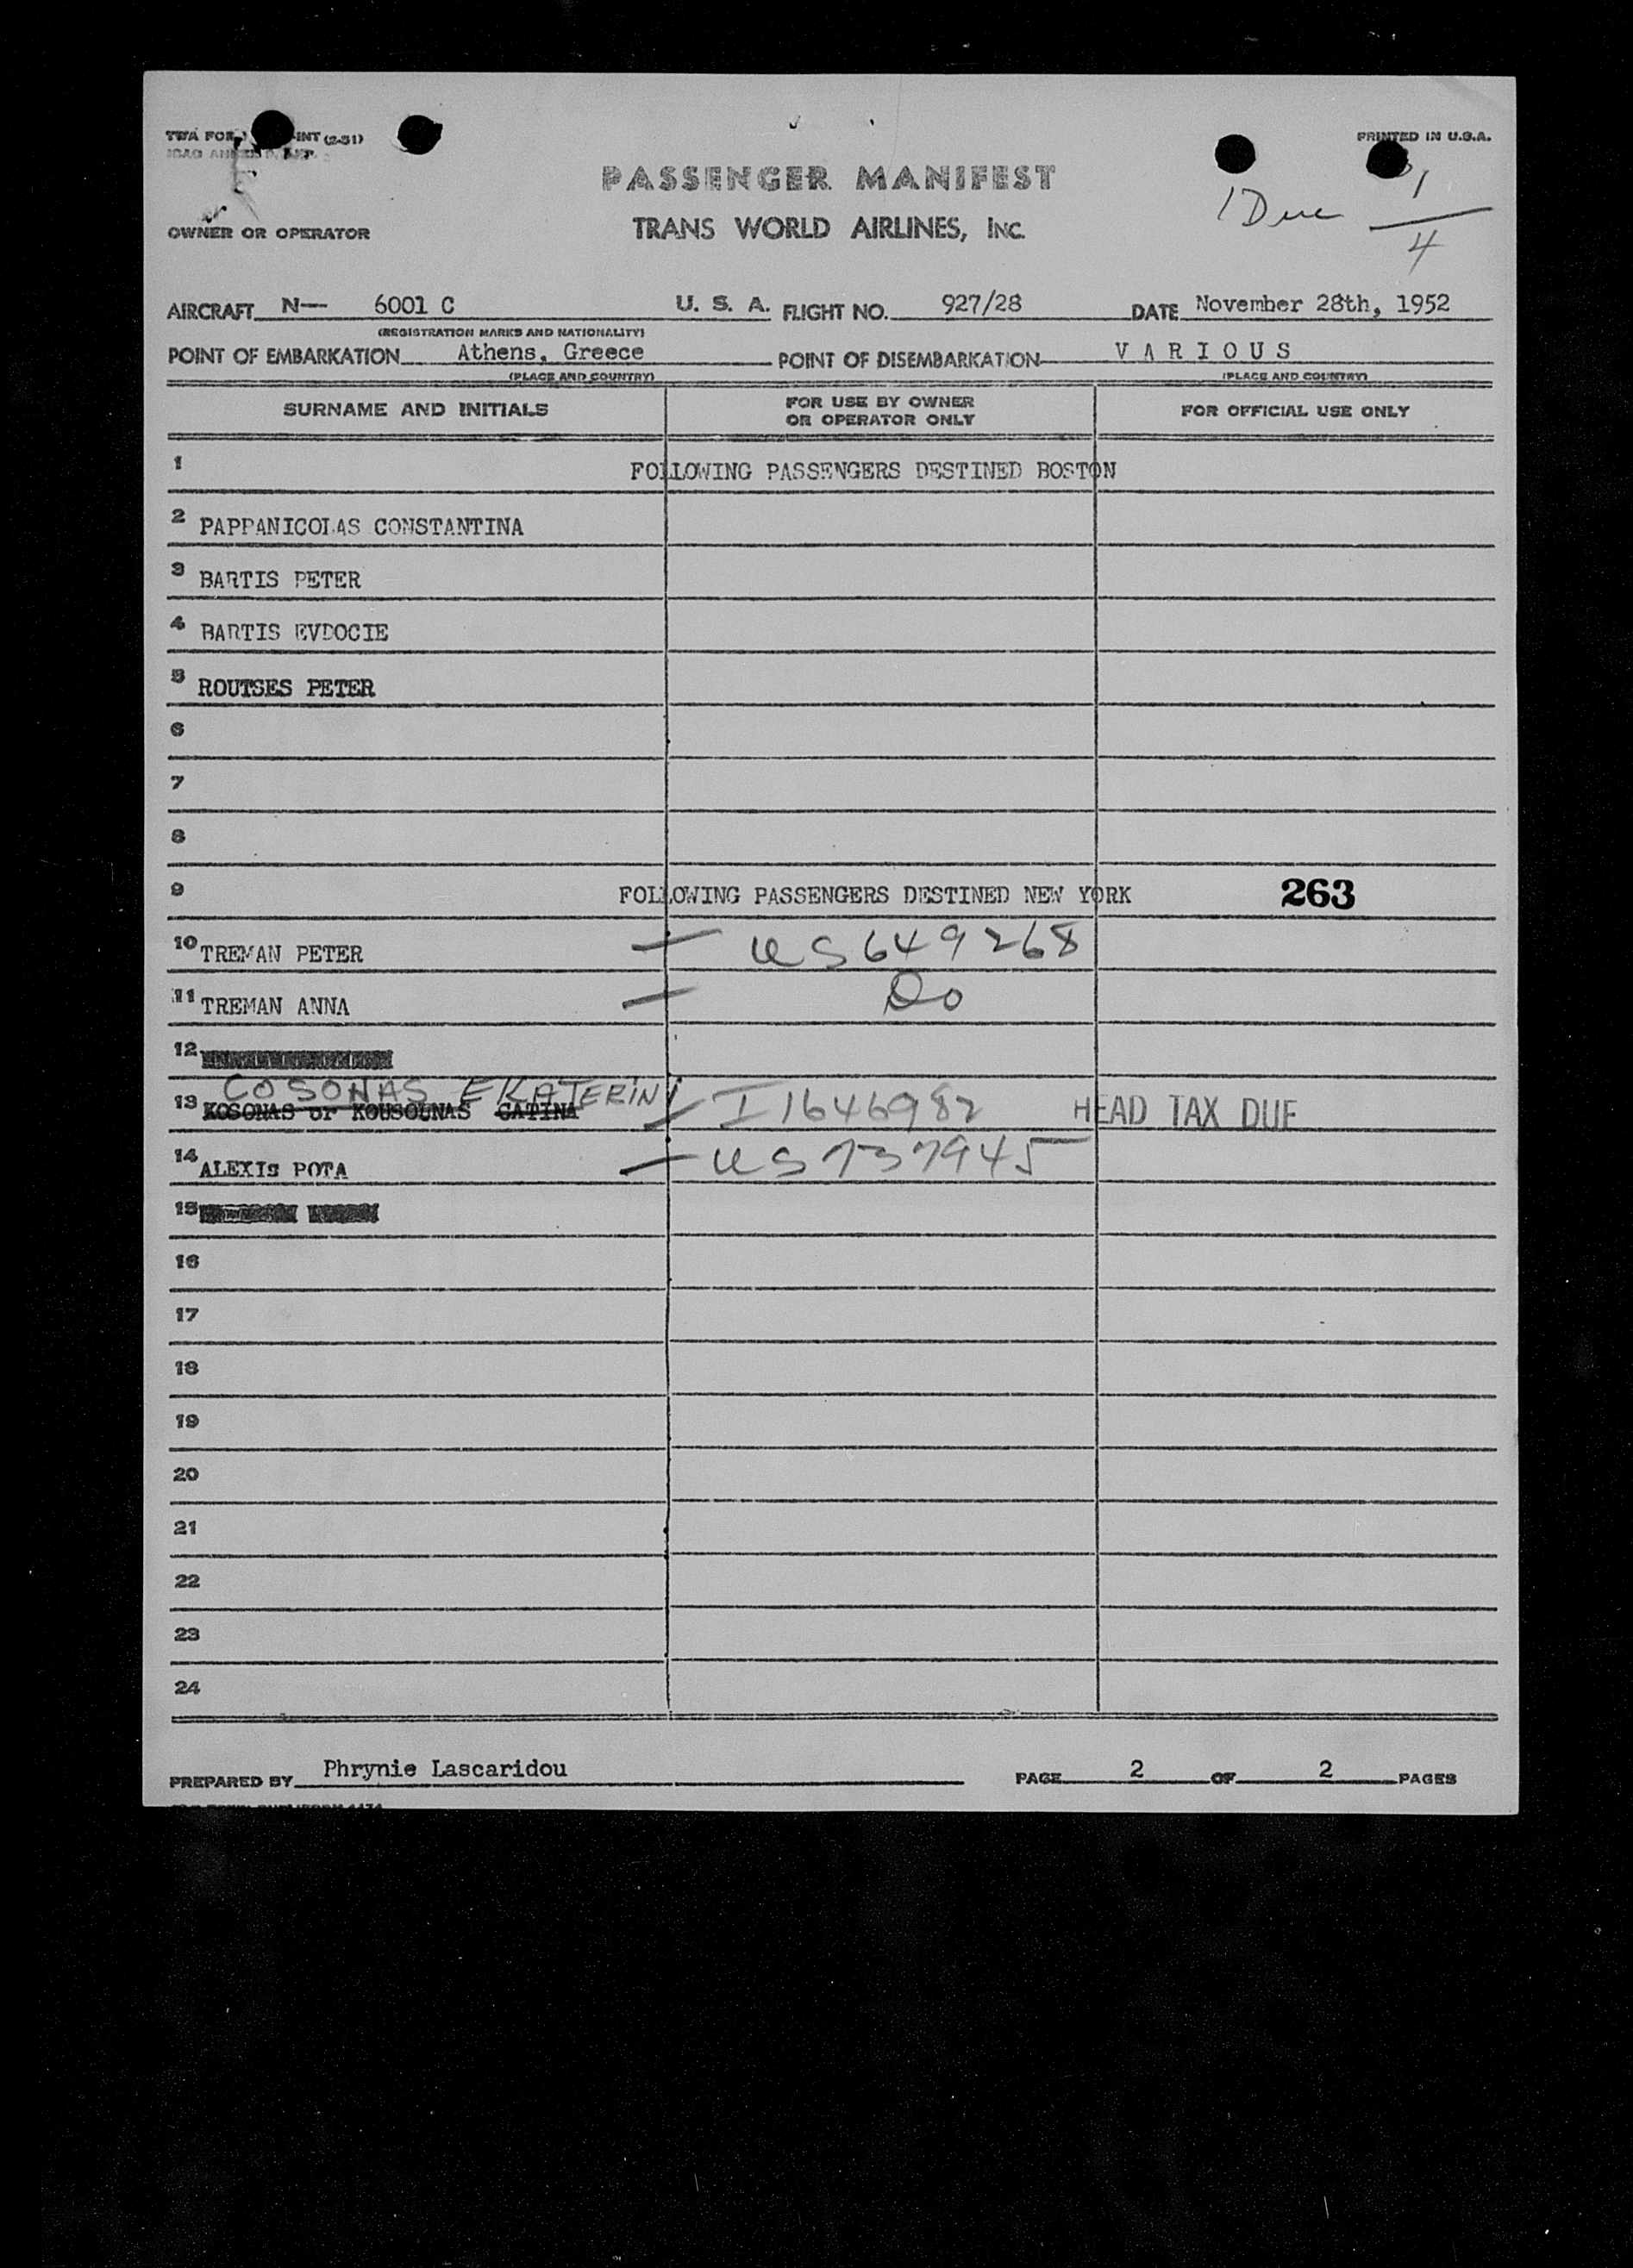 PRINTED IN U.S.A.
PASSENGER MANIFEST
1 Due 1/4
OWNER OR OPERATOR TRANS WORLD AIRLINES, INC.
AIRCRAFT N— 6001 C U. S. A. FLIGHT NO. 927/28 DATE November 28th, 1952
(REGISTRATION MARKS AND NATIONALITY)
POINT OF EMBARKATION Athens, Greece POINT OF DISEMBARKATION V A R I O U S
(PLACE AND COUNTRY) (PLACE AND COUNTRY)
SURNAME AND INITIALS FOR USE BY OWNER OR OPERATOR ONLY FOR OFFICIAL USE ONLY
1 FOLLOWING PASSENGERS DESTINED BOSTON
2 PAPPANICOLAS CONSTANTINA
3 BARTIS PETER
4 BARTIS EVDOCIE
5 ROUTSES PETER
6
7
8
9 FOLLOWING PASSENGERS DESTINED NEW YORK 263
10 TREMAN PETER — US649268
11 TREMAN ANNA — Do
12
COSONAS EKATERINI
13 KOSONAS or KOUSOUNAS CATINA — I1646982 HEAD TAX DUE
14 ALEXIS POTA — US737945
15
16
17
18
19
20
21
22
23
24
PREPARED BY Phrynie Lascaridou PAGE 2 OF 2 PAGES